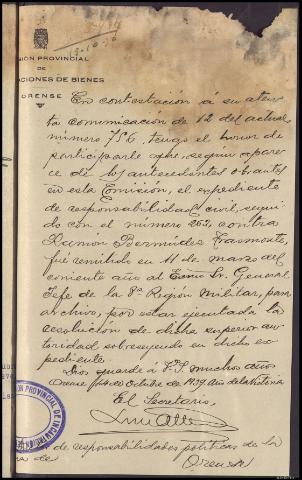 13-10-39
ION PROVINCIAL
DE
ACIONES DE BIENES
ORENSE
En contestación á su aten-
ta comunicacion de 12 del actual
número 756, tengo el honor de
participarle que, segun apare-
ce de los antecedentes obrantes
en esta Comisión, el expediente
de responsabilidad civil, segui-
do con el número 263, contra
Ramon Bermúdez Trasmonte,
fué remitido en 11 de marzo del
corriente año al Excmo Sr. General
Jefe de la 8ª Region Militar, para
archivo, por estar ejecutada la
resolucion de dicha superior au-
toridad sobreseyendo en dicho ex-
pediente.
Dios guarde á V.S. muchos años
Orense 14 de Octubre de 1939 Año de la Victoria
El Secretario,
PROVINCIAL DE INCAUTA
de responsabilidades politicas de la
de Orense